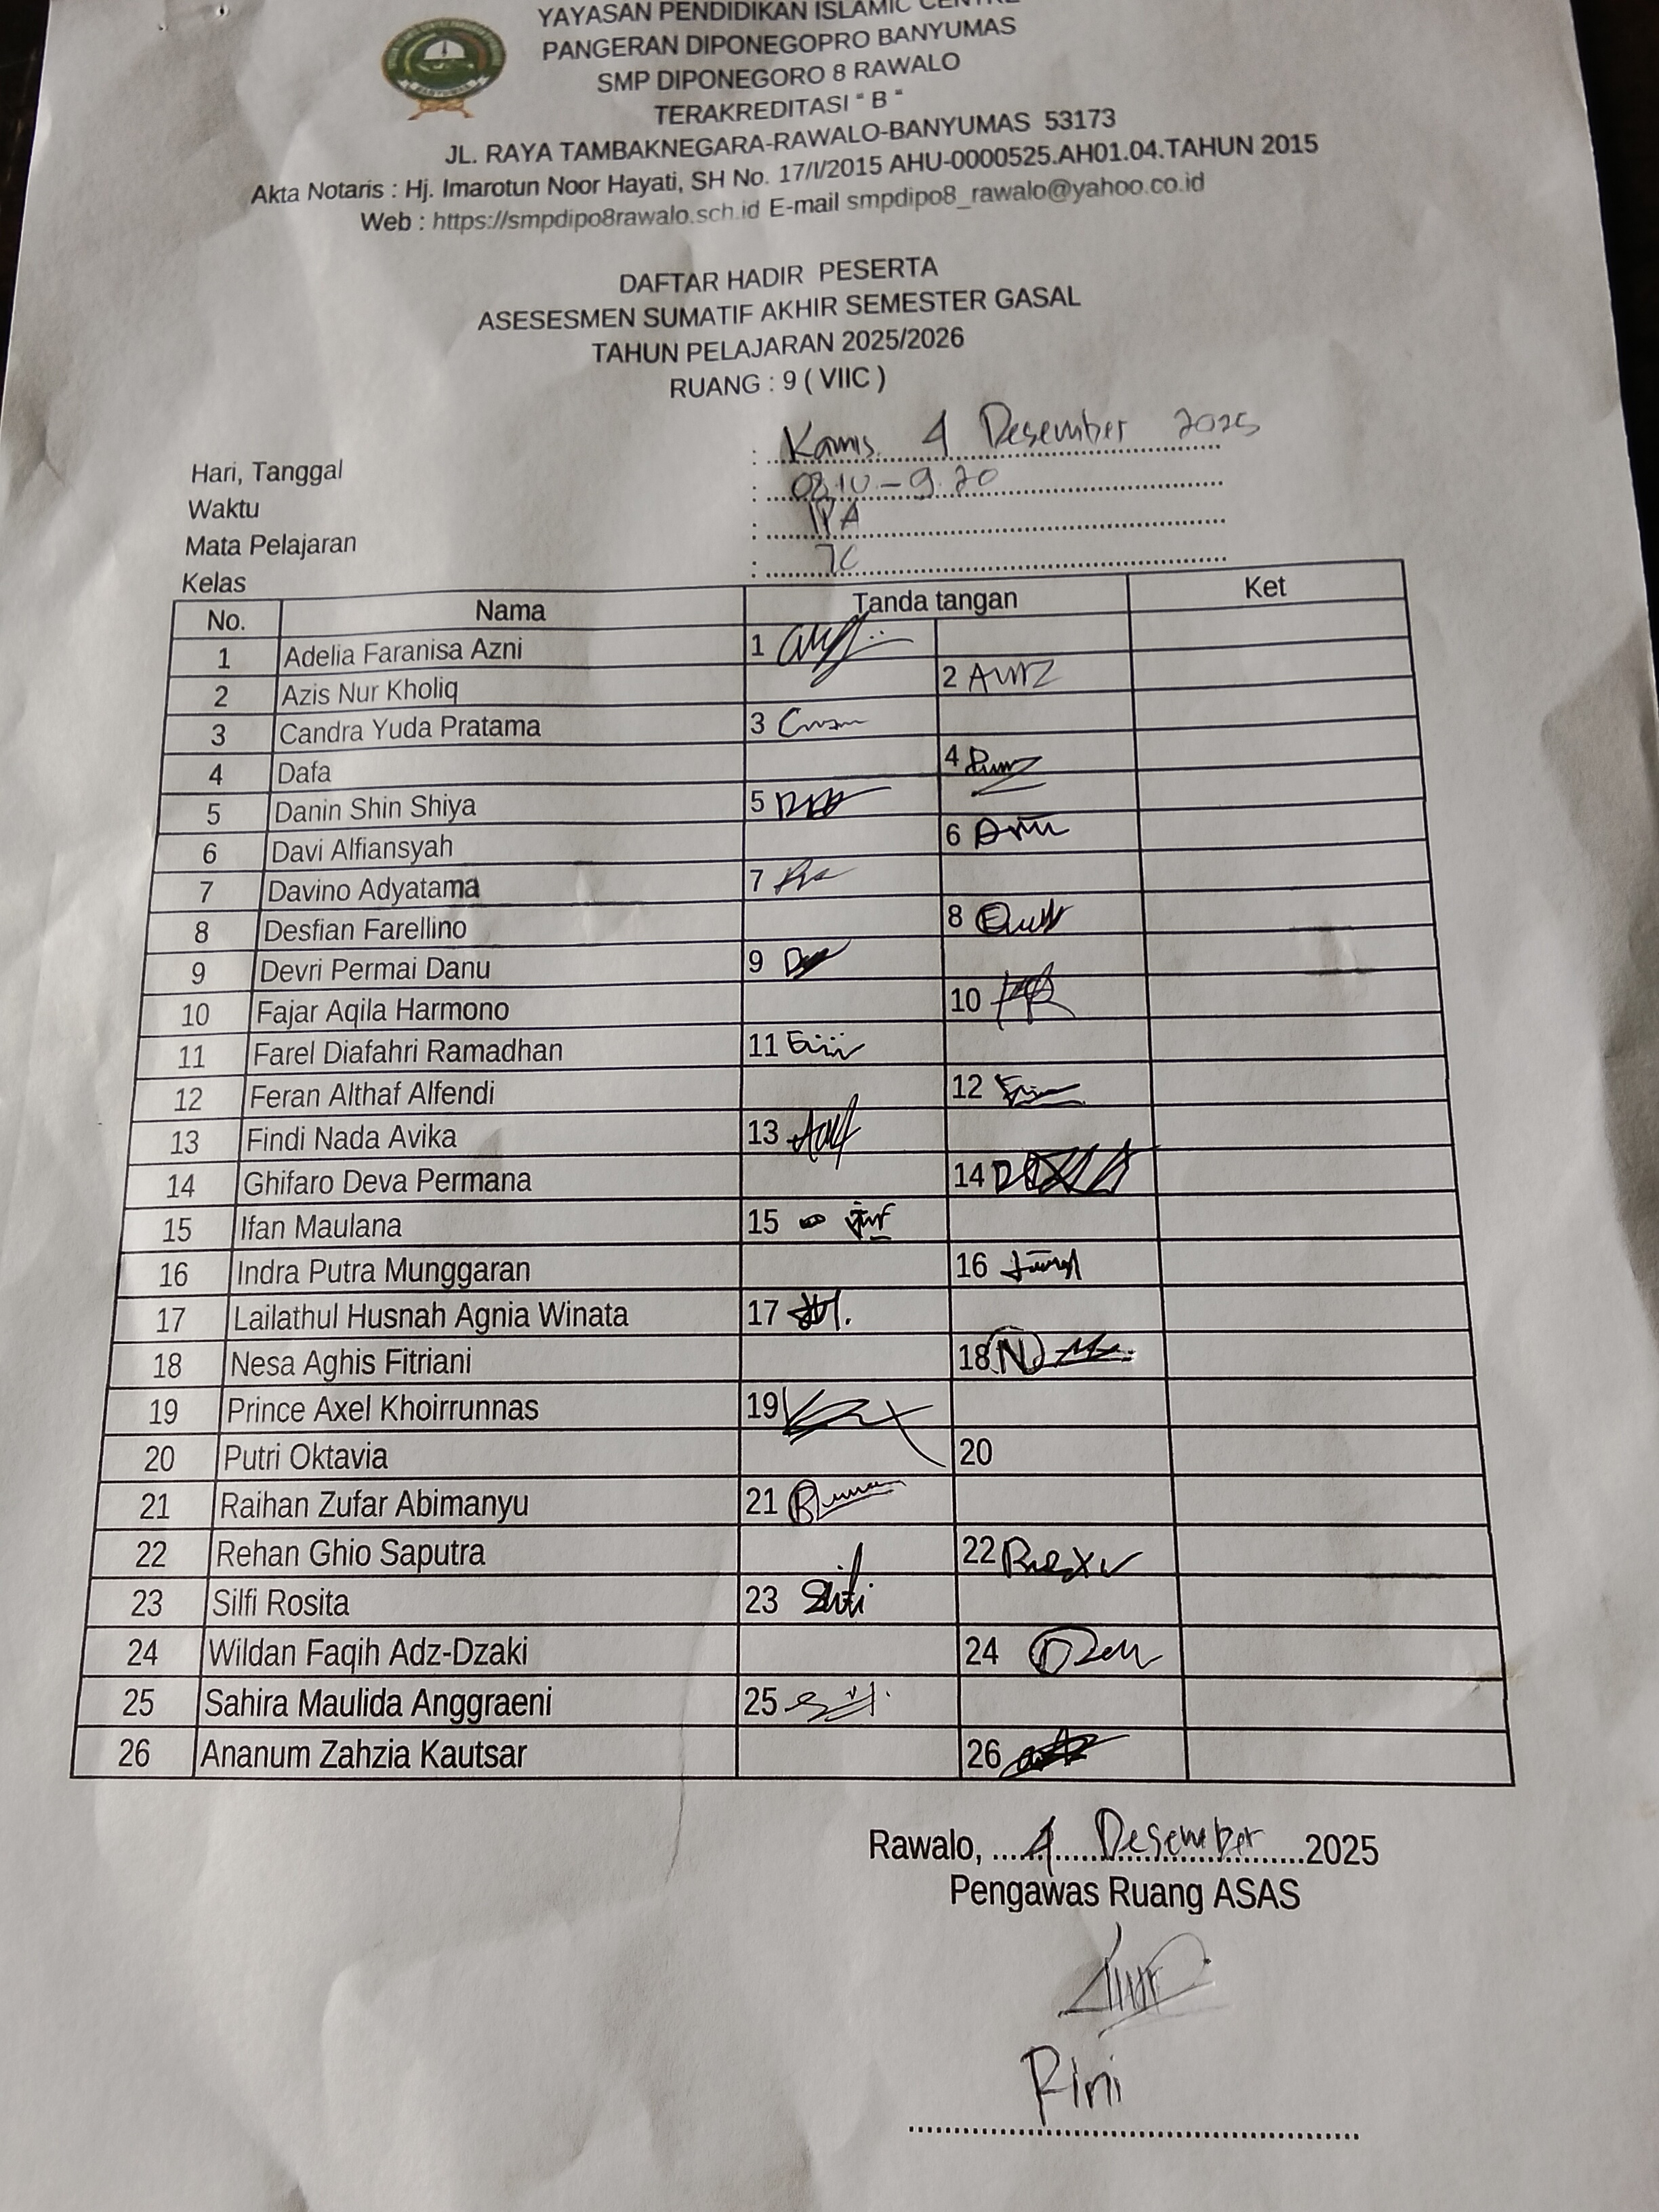 YAYASAN PENDIDIKAN ISLAMIC CENTRE
PANGERAN DIPONEGOPRO BANYUMAS
SMP DIPONEGORO 8 RAWALO
TERAKREDITASI " B "
JL. RAYA TAMBAKNEGARA-RAWALO-BANYUMAS 53173
Akta Notaris : Hj. Imarotun Noor Hayati, SH No. 17/I/2015 AHU-0000525.AH01.04.TAHUN 2015
Web : https://smpdipo8rawalo.sch.id E-mail smpdipo8_rawalo@yahoo.co.id
DAFTAR HADIR PESERTA
ASESESMEN SUMATIF AKHIR SEMESTER GASAL
TAHUN PELAJARAN 2025/2026
RUANG : 9 ( VIIC )
Hari, Tanggal : Kamis 4 Desember 2025
Waktu : 08.10 - 9.20
Mata Pelajaran : IPA
Kelas : 7C
No. Nama Tanda tangan Ket
1 Adelia Faranisa Azni 1
2 Azis Nur Kholiq 2
3 Candra Yuda Pratama 3
4 Dafa 4
5 Danin Shin Shiya 5
6 Davi Alfiansyah 6
7 Davino Adyatama 7
8 Desfian Farellino 8
9 Devri Permai Danu 9
10 Fajar Aqila Harmono 10
11 Farel Diafahri Ramadhan 11
12 Feran Althaf Alfendi 12
13 Findi Nada Avika 13
14 Ghifaro Deva Permana 14
15 Ifan Maulana 15
16 Indra Putra Munggaran 16
17 Lailathul Husnah Agnia Winata 17
18 Nesa Aghis Fitriani 18
19 Prince Axel Khoirrunnas 19
20 Putri Oktavia 20
21 Raihan Zufar Abimanyu 21
22 Rehan Ghio Saputra 22
23 Silfi Rosita 23
24 Wildan Faqih Adz-Dzaki 24
25 Sahira Maulida Anggraeni 25
26 Ananum Zahzia Kautsar 26
Rawalo, 4 Desember 2025
Pengawas Ruang ASAS
Rini